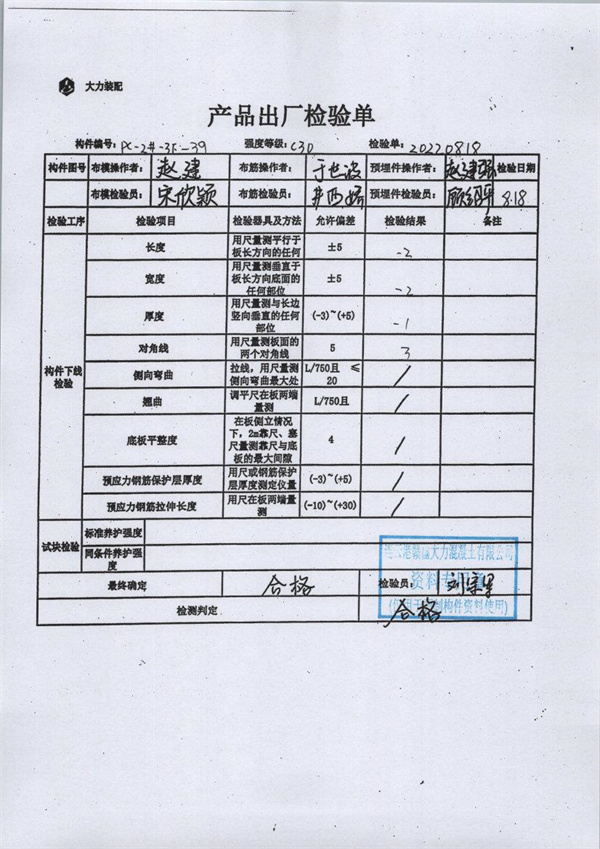 大力装配
产品出厂检验单
构件编号: PC-2#-3F-39 强度等级: C30 检验单: 20220818
构件图号 布模操作者: 赵建 布筋操作者: 预埋件操作者: 赵建强 检验日期
布模检验员: 宋欣颖 布筋检验员: 预埋件检验员: 8.18
检验工序 检验项目 检验器具及方法 允许偏差 检验结果 备注
构件下线检验
长度 用尺量测平行于板长方向的任何 ±5 -2
宽度 用尺量测垂直于板长方向底面的任何部位 ±5 -2
厚度 用尺量测与长边竖向垂直的任何部位 (-3)~(+5) -1
对角线 用尺量测板面的两个对角线 5 3
侧向弯曲 拉线，用尺量测侧向弯曲最大处 L/750且 ≤20 /
翘曲 调平尺在板两端量测 L/750且 /
底板平整度 在板侧立情况下，2m靠尺、塞尺量测靠尺与底板的最大间隙 4 /
预应力钢筋保护层厚度 用尺或钢筋保护层厚度测定仪量 (-3)~(+5) /
预应力钢筋拉伸长度 用尺在板两端量测 (-10)~(+30) /
试块检验 标准养护强度
同条件养护强度
最终确定 合格 检验员:
检测判定 合格